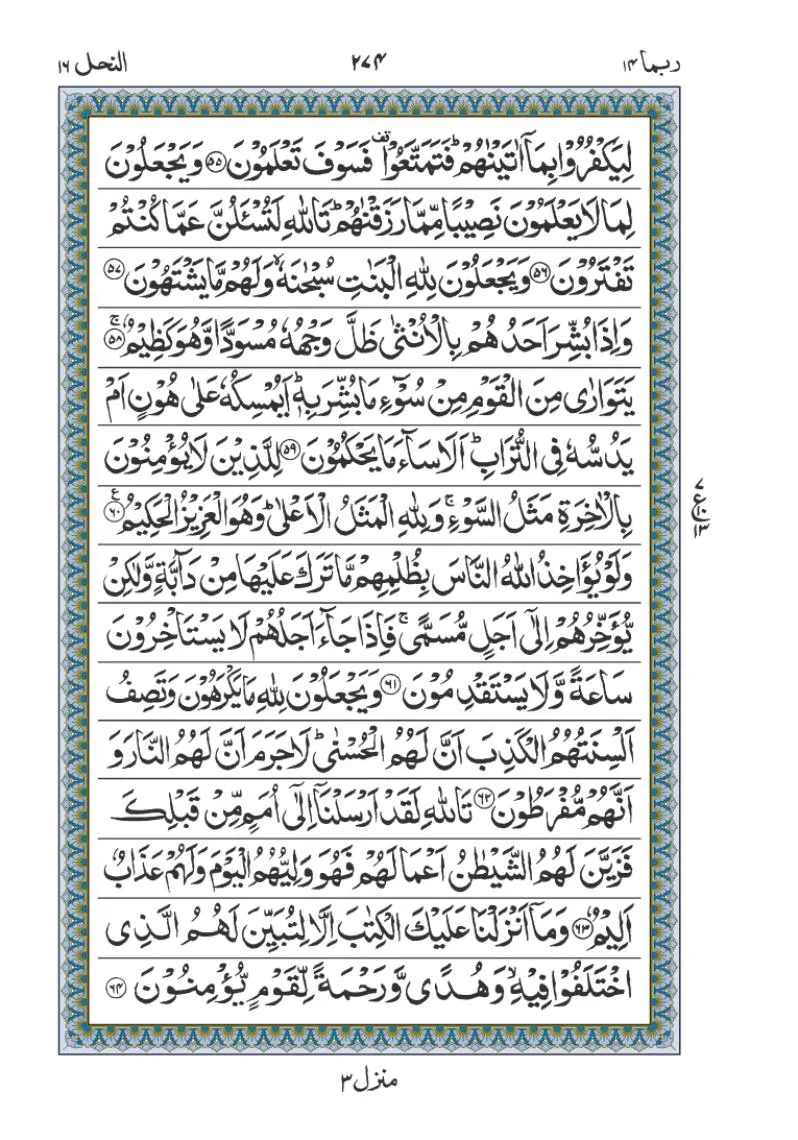 ربما ۱۴ ۲۷۴ النحل ۱۶
لِيَكْفُرُوْا بِمَاۤ اٰتَيْنٰهُمْ ؕ فَتَمَتَّعُوْا ࣞ فَسَوْفَ تَعْلَمُوْنَ ۝۵۵ وَ يَجْعَلُوْنَ
لِمَا لَا يَعْلَمُوْنَ نَصِيْبًا مِّمَّا رَزَقْنٰهُمْ ؕ تَاللّٰهِ لَتُسْـَٔلُنَّ عَمَّا كُنْتُمْ
تَفْتَرُوْنَ ۝۵۶ وَ يَجْعَلُوْنَ لِلّٰهِ الْبَنٰتِ سُبْحٰنَهٗ ۙ وَ لَهُمْ مَّا يَشْتَهُوْنَ ۝۵۷
وَ اِذَا بُشِّرَ اَحَدُهُمْ بِالْاُنْثٰى ظَلَّ وَجْهُهٗ مُسْوَدًّا وَّ هُوَ كَظِيْمٌ ۝۵۸ ۚ
يَتَوَارٰى مِنَ الْقَوْمِ مِنْ سُوْٓءِ مَا بُشِّرَ بِهٖ ؕ اَيُمْسِكُهٗ عَلٰى هُوْنٍ اَمْ
يَدُسُّهٗ فِى التُّرَابِ ؕ اَلَا سَآءَ مَا يَحْكُمُوْنَ ۝۵۹ لِلَّذِيْنَ لَا يُؤْمِنُوْنَ
بِالْاٰخِرَةِ مَثَلُ السَّوْءِ ۚ وَ لِلّٰهِ الْمَثَلُ الْاَعْلٰى ؕ وَ هُوَ الْعَزِيْزُ الْحَكِيْمُ ۝۶۰ ع
وَ لَوْ يُؤَاخِذُ اللّٰهُ النَّاسَ بِظُلْمِهِمْ مَّا تَرَكَ عَلَيْهَا مِنْ دَآبَّةٍ وَّ لٰكِنْ
يُّؤَخِّرُهُمْ اِلٰۤى اَجَلٍ مُّسَمًّى ۚ فَاِذَا جَآءَ اَجَلُهُمْ لَا يَسْتَاْخِرُوْنَ
سَاعَةً وَّ لَا يَسْتَقْدِمُوْنَ ۝۶۱ وَ يَجْعَلُوْنَ لِلّٰهِ مَا يَكْرَهُوْنَ وَ تَصِفُ
اَلْسِنَتُهُمُ الْكَذِبَ اَنَّ لَهُمُ الْحُسْنٰى ؕ لَا جَرَمَ اَنَّ لَهُمُ النَّارَ وَ
اَنَّهُمْ مُّفْرَطُوْنَ ۝۶۲ تَاللّٰهِ لَقَدْ اَرْسَلْنَاۤ اِلٰۤى اُمَمٍ مِّنْ قَبْلِكَ
فَزَيَّنَ لَهُمُ الشَّيْطٰنُ اَعْمَالَهُمْ فَهُوَ وَلِيُّهُمُ الْيَوْمَ وَ لَهُمْ عَذَابٌ
اَلِيْمٌ ۝۶۳ وَ مَاۤ اَنْزَلْنَا عَلَيْكَ الْكِتٰبَ اِلَّا لِتُبَيِّنَ لَهُمُ الَّذِى
اخْتَلَفُوْا فِيْهِ ۙ وَ هُدًى وَّ رَحْمَةً لِّقَوْمٍ يُّؤْمِنُوْنَ ۝۶۴
۷
ع ۱۰
۱۳
منزل ۳